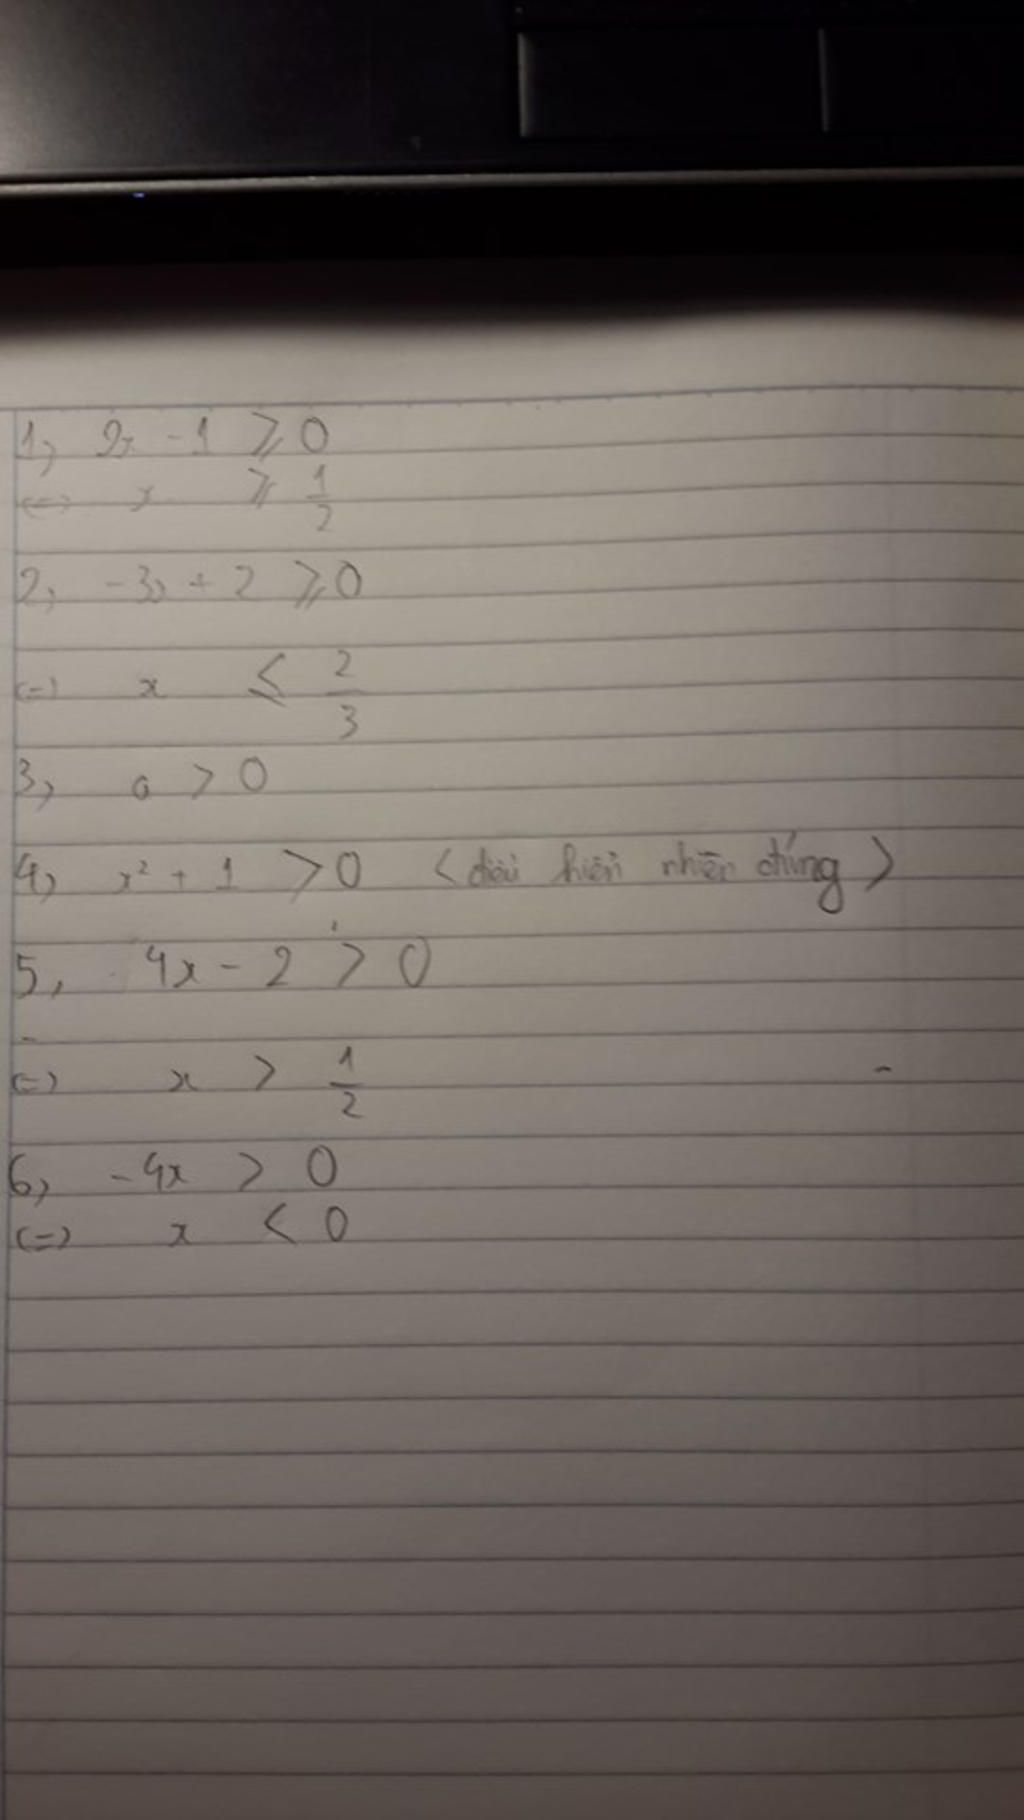 1, 2x - 1 ⩾ 0
<=> x ⩾ 1/2
2, -3x + 2 ⩾ 0
<=> x ⩽ 2/3
3, a > 0
4, x² + 1 > 0 < điều hiển nhiên đúng >
5, 4x - 2 > 0
<=> x > 1/2
6, -4x > 0
<=> x < 0